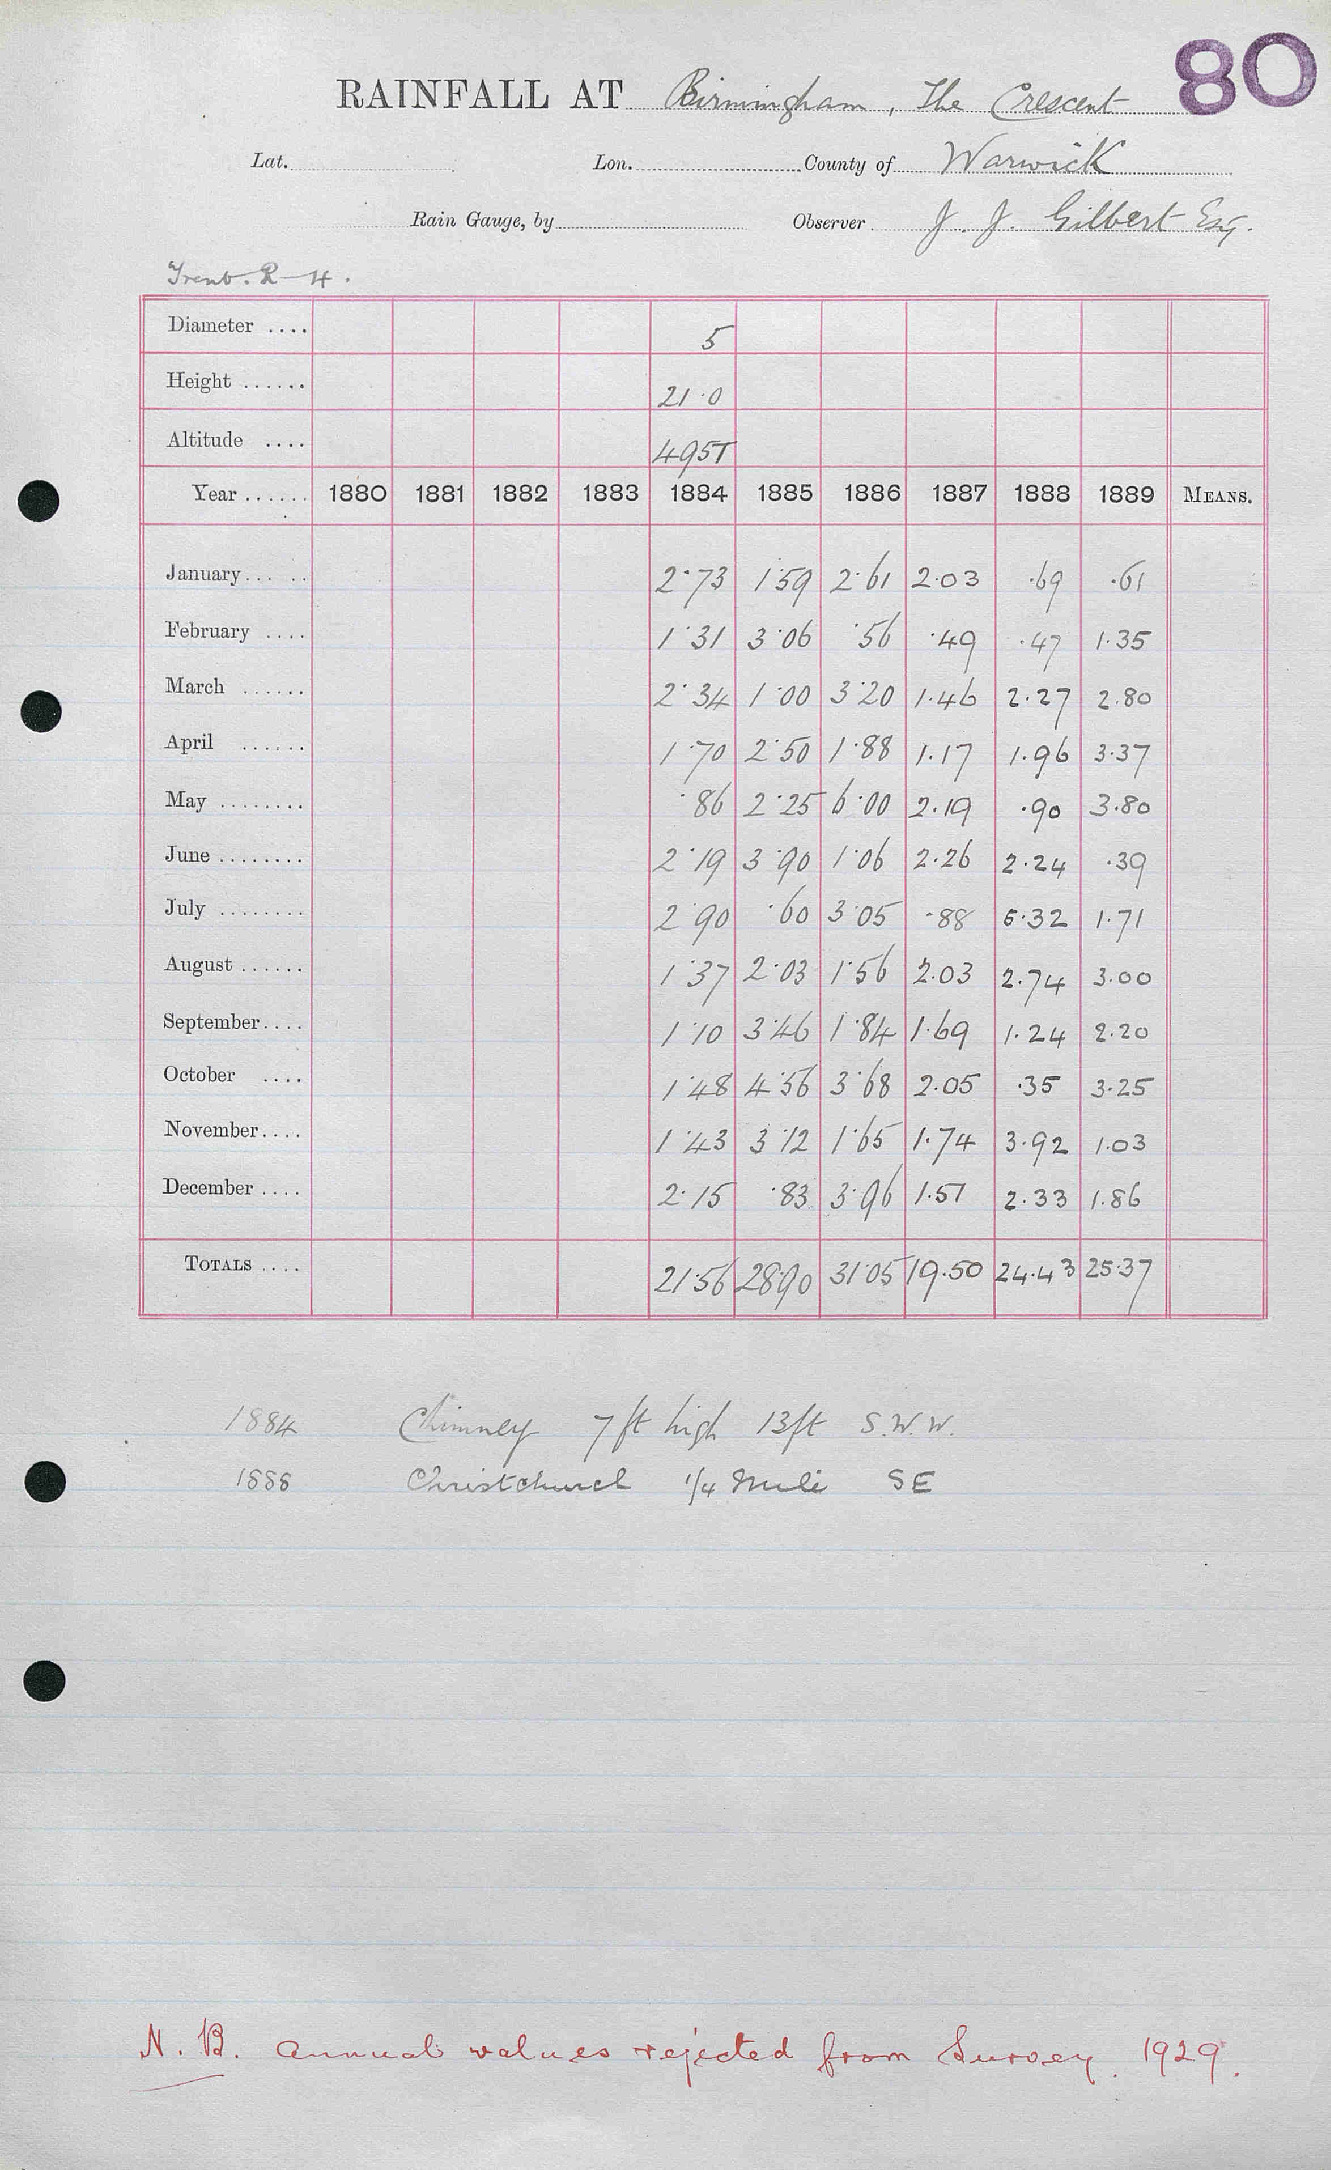 80
RAINFALL AT Birmingham, The Crescent
Lat. Lon. County of Warwick
Rain Gauge, by Observer J. J. Gilbert Esq.
Trent. R-4.
Diameter .... 5
Height ...... 21·0
Altitude .... 495T
Year ...... 1880 1881 1882 1883 1884 1885 1886 1887 1888 1889 MEANS.
January... .. 2·73 1·59 2·61 2·03 ·69 ·61
February .... 1·31 3·06 ·56 ·49 ·47 1·35
March ...... 2·34 1·00 3·20 1·46 2·27 2·80
April ...... 1·70 2·50 1·88 1·17 1·96 3·37
May ........ ·86 2·25 6·00 2·19 ·90 3·80
June ........ 2·19 3·90 1·06 2·26 2·24 ·39
July ........ 2·90 ·60 3·05 ·88 5·32 1·71
August ...... 1·37 2·03 1·56 2·03 2·74 3·00
September.... 1·10 3·46 1·84 1·69 1·24 2·20
October .... 1·48 4·56 3·68 2·05 ·35 3·25
November.... 1·43 3·12 1·65 1·74 3·92 1·03
December .... 2·15 ·83 3·96 1·51 2·33 1·86
TOTALS .... 21·56 28·90 31·05 19·50 24·43 25·37
1884 Chimney 7 ft high 13ft S.W.W.
1888 Christchurch 1/4 Mile SE
N.B. annual values rejected from Survey. 1929.